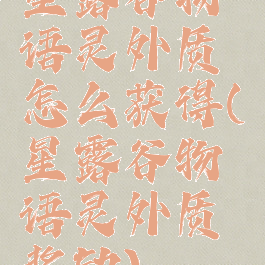 星露谷物
语灵外质
怎么获得(
星露谷物
语灵外质